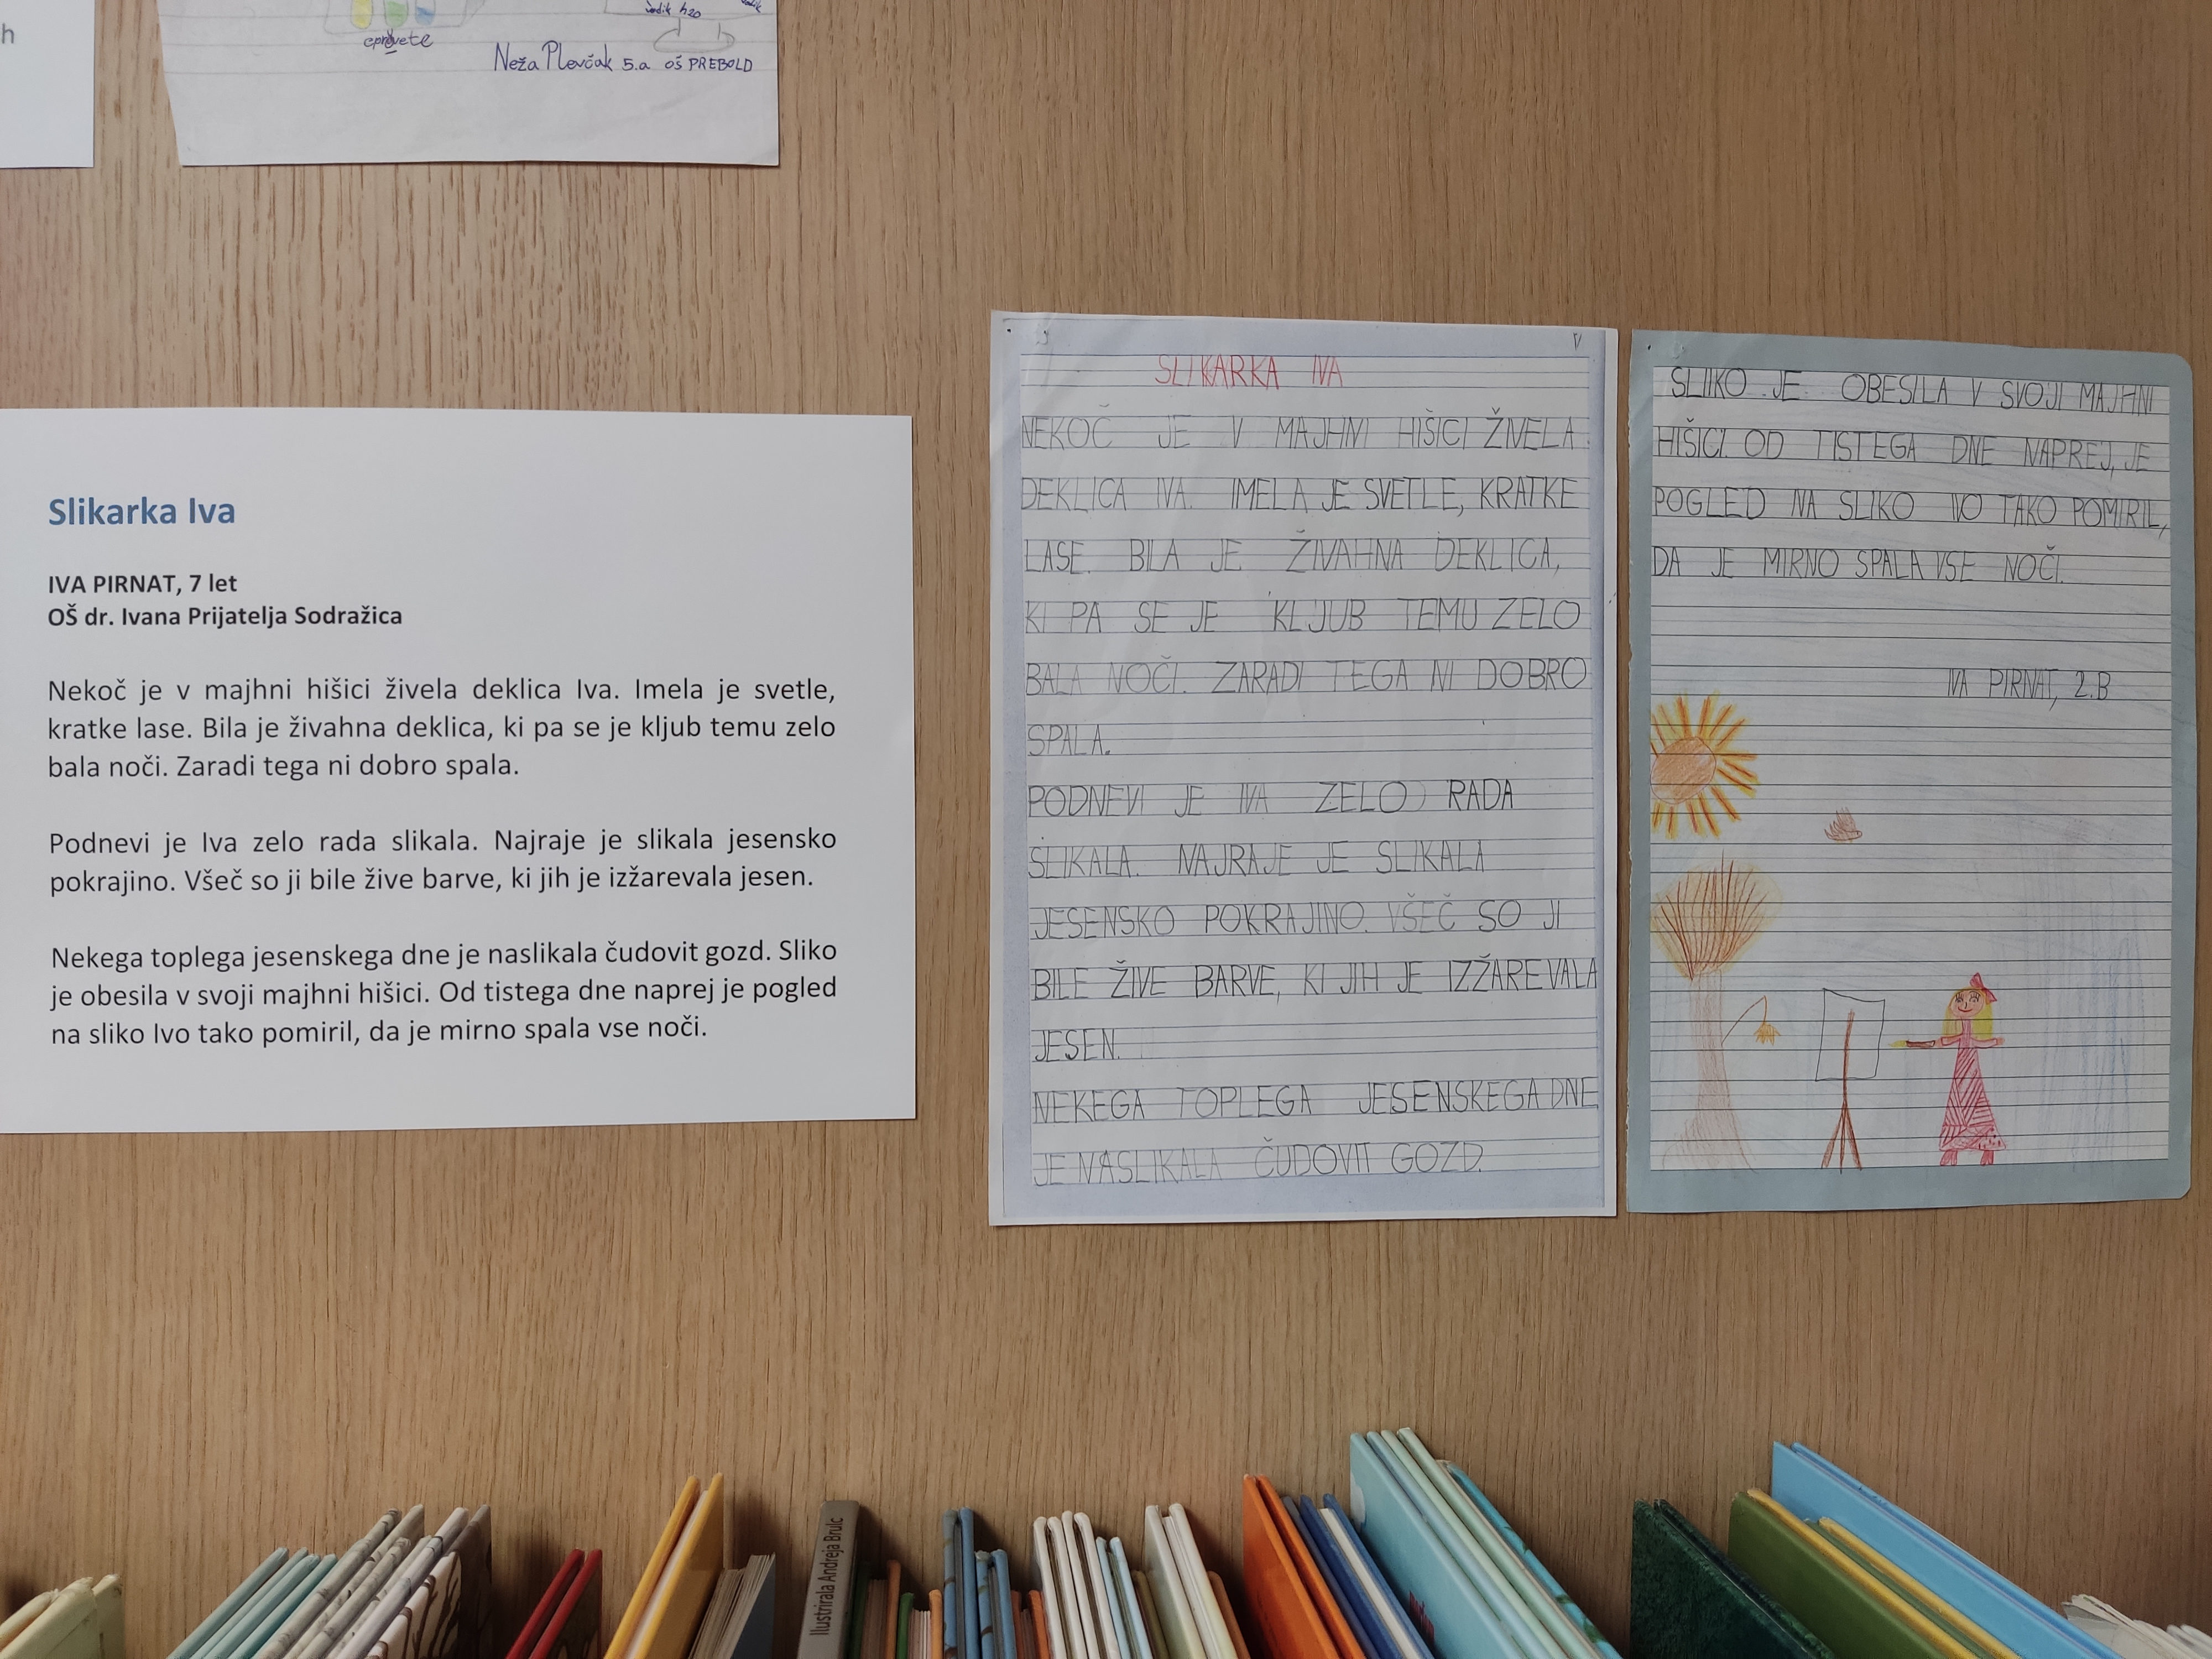 h
epruvete
vodik h20
vodik
Neža Plevčak 5.a OŠ PREBOLD
Slikarka Iva
IVA PIRNAT, 7 let
OŠ dr. Ivana Prijatelja Sodražica
Nekoč je v majhni hišici živela deklica Iva. Imela je svetle,
kratke lase. Bila je živahna deklica, ki pa se je kljub temu zelo
bala noči. Zaradi tega ni dobro spala.
Podnevi je Iva zelo rada slikala. Najraje je slikala jesensko
pokrajino. Všeč so ji bile žive barve, ki jih je izžarevala jesen.
Nekega toplega jesenskega dne je naslikala čudovit gozd. Sliko
je obesila v svoji majhni hišici. Od tistega dne naprej je pogled
na sliko Ivo tako pomiril, da je mirno spala vse noči.
SLIKARKA IVA
NEKOČ JE V MAJHNI HIŠICI ŽIVELA
DEKLICA IVA. IMELA JE SVETLE, KRATKE
LASE. BILA JE ŽIVAHNA DEKLICA,
KI PA SE JE KLJUB TEMU ZELO
BALA NOČI. ZARADI TEGA NI DOBRO
SPALA.
PODNEVI JE IVA ZELO RADA
SLIKALA. NAJRAJE JE SLIKALA
JESENSKO POKRAJINO. VŠEČ SO JI
BILE ŽIVE BARVE, KI JIH JE IZŽAREVALA
JESEN.
NEKEGA TOPLEGA JESENSKEGA DNE
JE NASLIKALA ČUDOVIT GOZD.
SLIKO JE OBESILA V SVOJI MAJHNI
HIŠICI. OD TISTEGA DNE NAPREJ, JE
POGLED NA SLIKO IVO TAKO POMIRIL,
DA JE MIRNO SPALA VSE NOČI.
IVA PIRNAT, 2.B
Ilustrirala Andreja Brulc